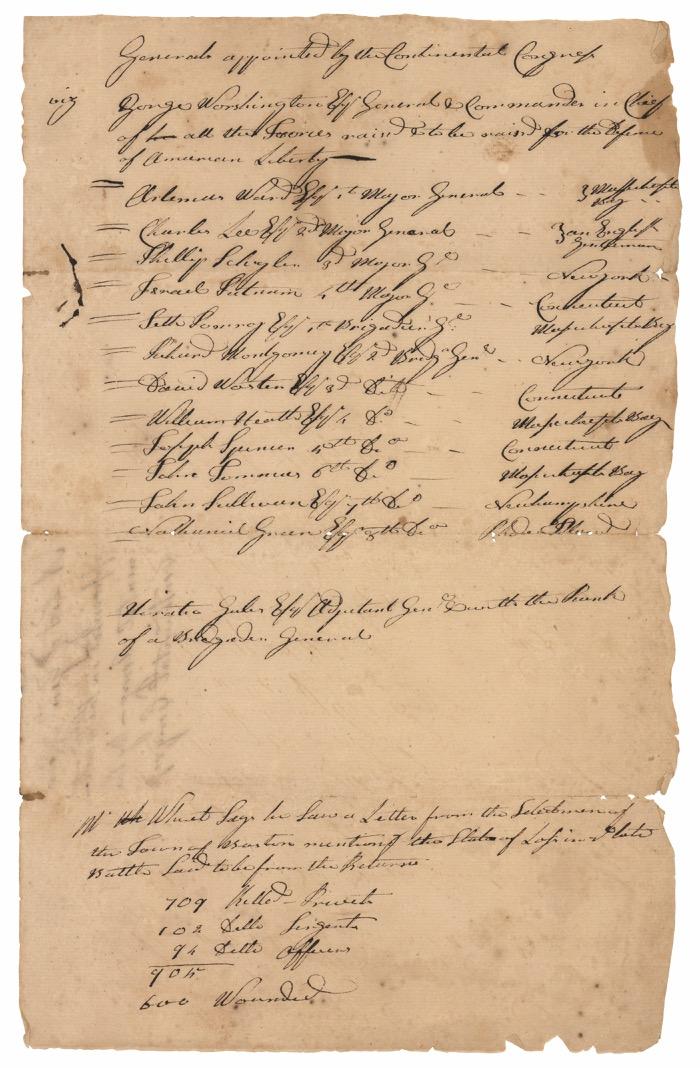 Generals appointed by the Continental Congress
viz George Worshington Esqr General & Commander in Chief
of all the Forces raised & to be raisd for the Defence
of American Liberty
Artemus Ward Esqr 1st Major General - - 3 Massachusets Bay
Charles Lee Esqr 2d Major General - - 3 an English Genteman
Phillip Schyler 3d Major Gl - - Newyork
Israel Putnam 4th Major Gl - - Connecticut
Seth Pomroy Esqr 1st Brigadier Gl Massachusets Bay
Richard Montgomey Esqr 2d Brigr Genl - Newyork
David Worster Esqr 3d Ditto - - Connecticut
William Heath Esqr 4 Do - - Massachusets Bay
Joseph Spencer 5th Do - - Connecticut
John Tommas 6th Do Massachusets Bay
John Sullivan Esqr 7th Do Newhampshire
Nathaniel Green Esqr 8th Do Rhode Island
Horatio Gates Esqr Adjutant Genl & with the Rank
of a Brigader General
Mr Whuet Says he Saw a Letter from the Selectmen of
the Town of Boston mentiong the State of Loss in late
Battle Said to be from the Returns
709 Killed - Privets
102 Ditto Sergents
94 Ditto Officers
905
600 Wounded